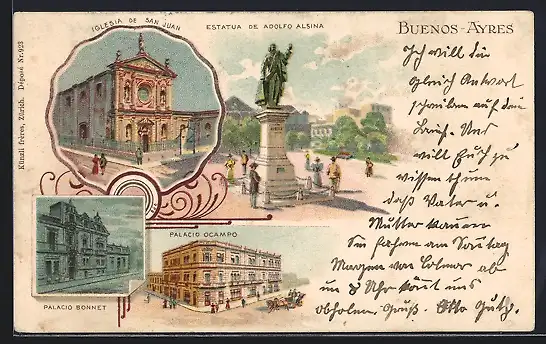 IGLESIA DE SAN JUAN
ESTATUA DE ADOLFO ALSINA
BUENOS-AYRES
Künzli frères, Zürich. Déposé Nr. 923
PALACIO OCAMPO
PALACIO BONNET
Ich will dir
gleich Antwort
schreiben auf den
Brief. Und
will Euch zu
wissen thun
daß Vater u.
Mutter kommen
Sie fahren am Sontag
Morgen von Colmar ab
um 8 Uhr könt uns
abholen. Gruß. Otto